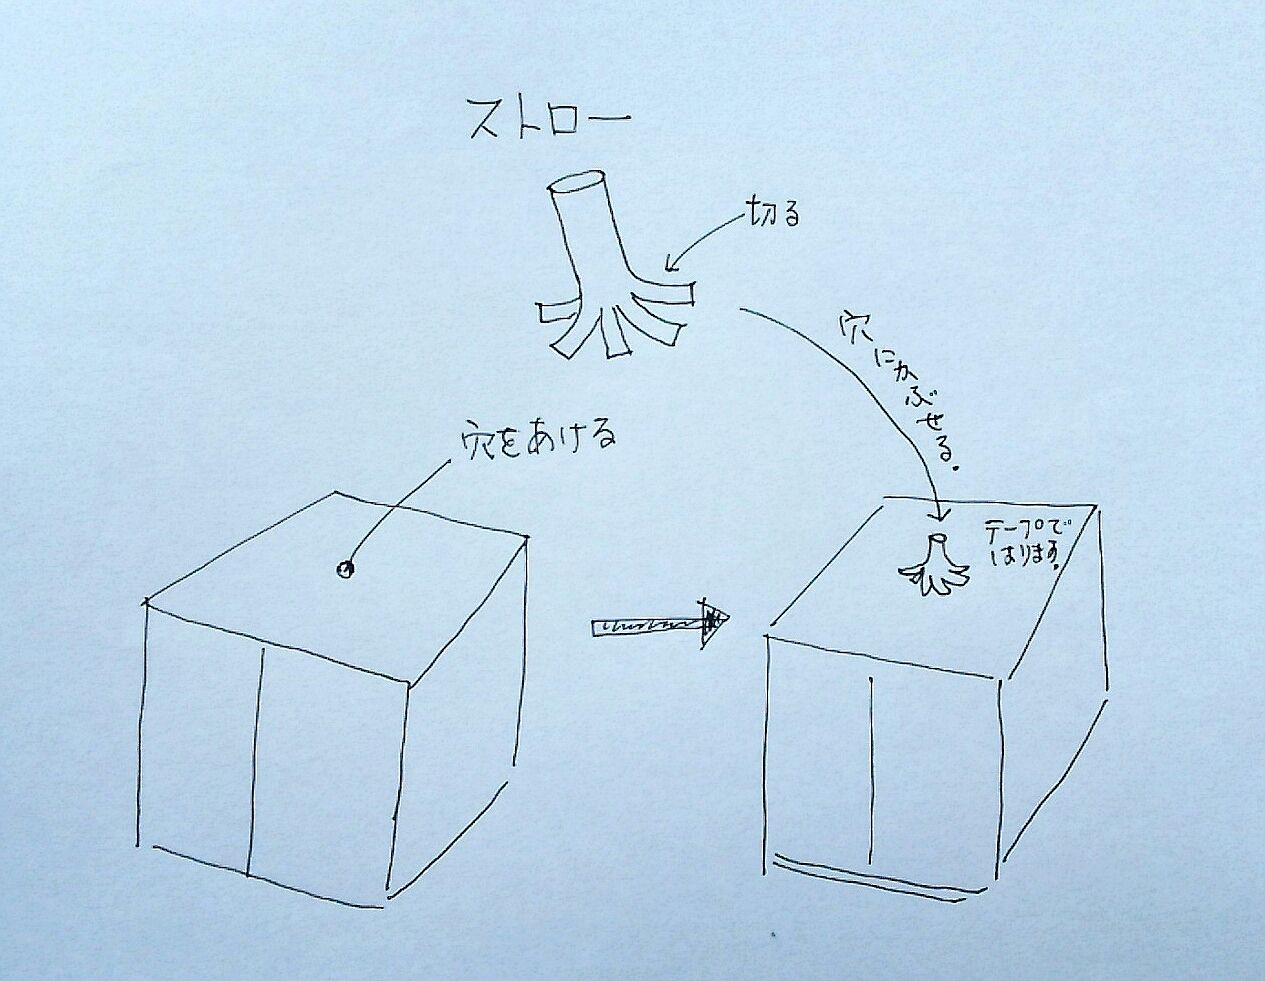 ストロー
切る
穴にかぶせる。
穴をあける
テープで
はります。